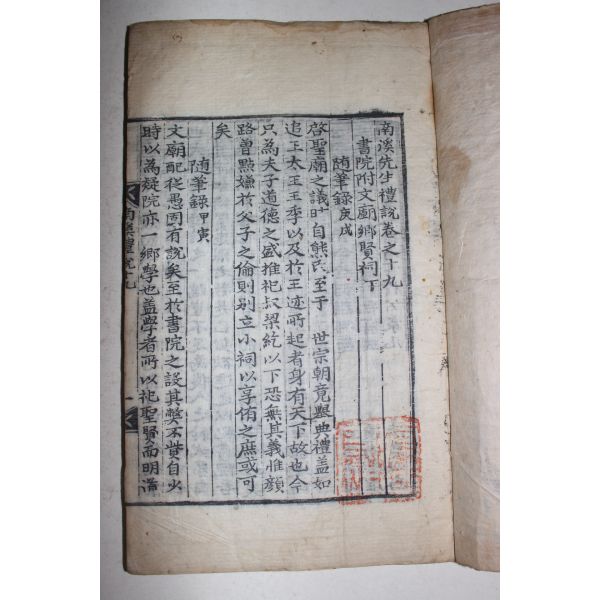 南溪先生禮說卷之十九
書院附文廟鄕賢祠下
隨筆錄庚戌
啓聖廟之議昉自熊氏至于 世宗朝竟擧典禮盖如
追王太王王季以及於王迹所起者身有天下故也今
只為夫子道德之盛推祀叔梁紇以下恐無其義惟顔
路曾點嫌於父子之倫則别立小祠以享侑之庶或可
矣
隨筆錄甲寅
文廟配從愚固有說矣至於書院之設其弊不貲自少
時以為疑院亦一鄕學也盖學者所以祀聖賢而明
南溪禮說十九
一